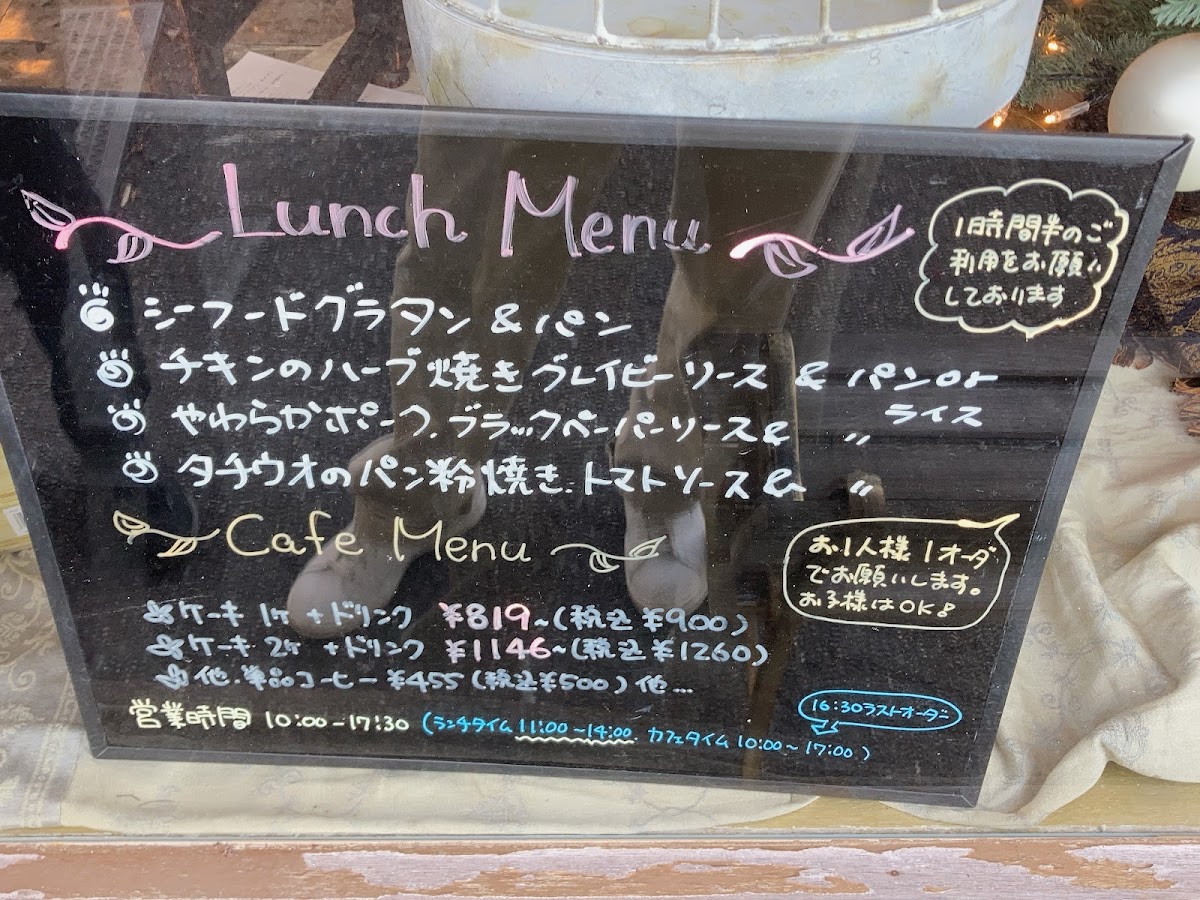 Lunch Menu
1時間半のご
利用をお願い
しております
シーフードグラタン & パン
チキンのハーブ焼き グレイビーソース & パンor
ライス
やわらかポーク. ブラックペーパーソース & 〃
タチウオのパン粉焼き. トマトソース & 〃
Cafe Menu
お1人様 1オーダ
でお願いします。
お子様はOK!
ケーキ 1ヶ + ドリンク ¥819~(税込 ¥900)
ケーキ 2ヶ + ドリンク ¥1146~(税込 ¥1260)
他. 単品コーヒー ¥455 (税込¥500) 他...
16:30ラストオーダー
営業時間 10:00-17:30 (ランチタイム 11:00~14:00. カフェタイム 10:00~17:00)